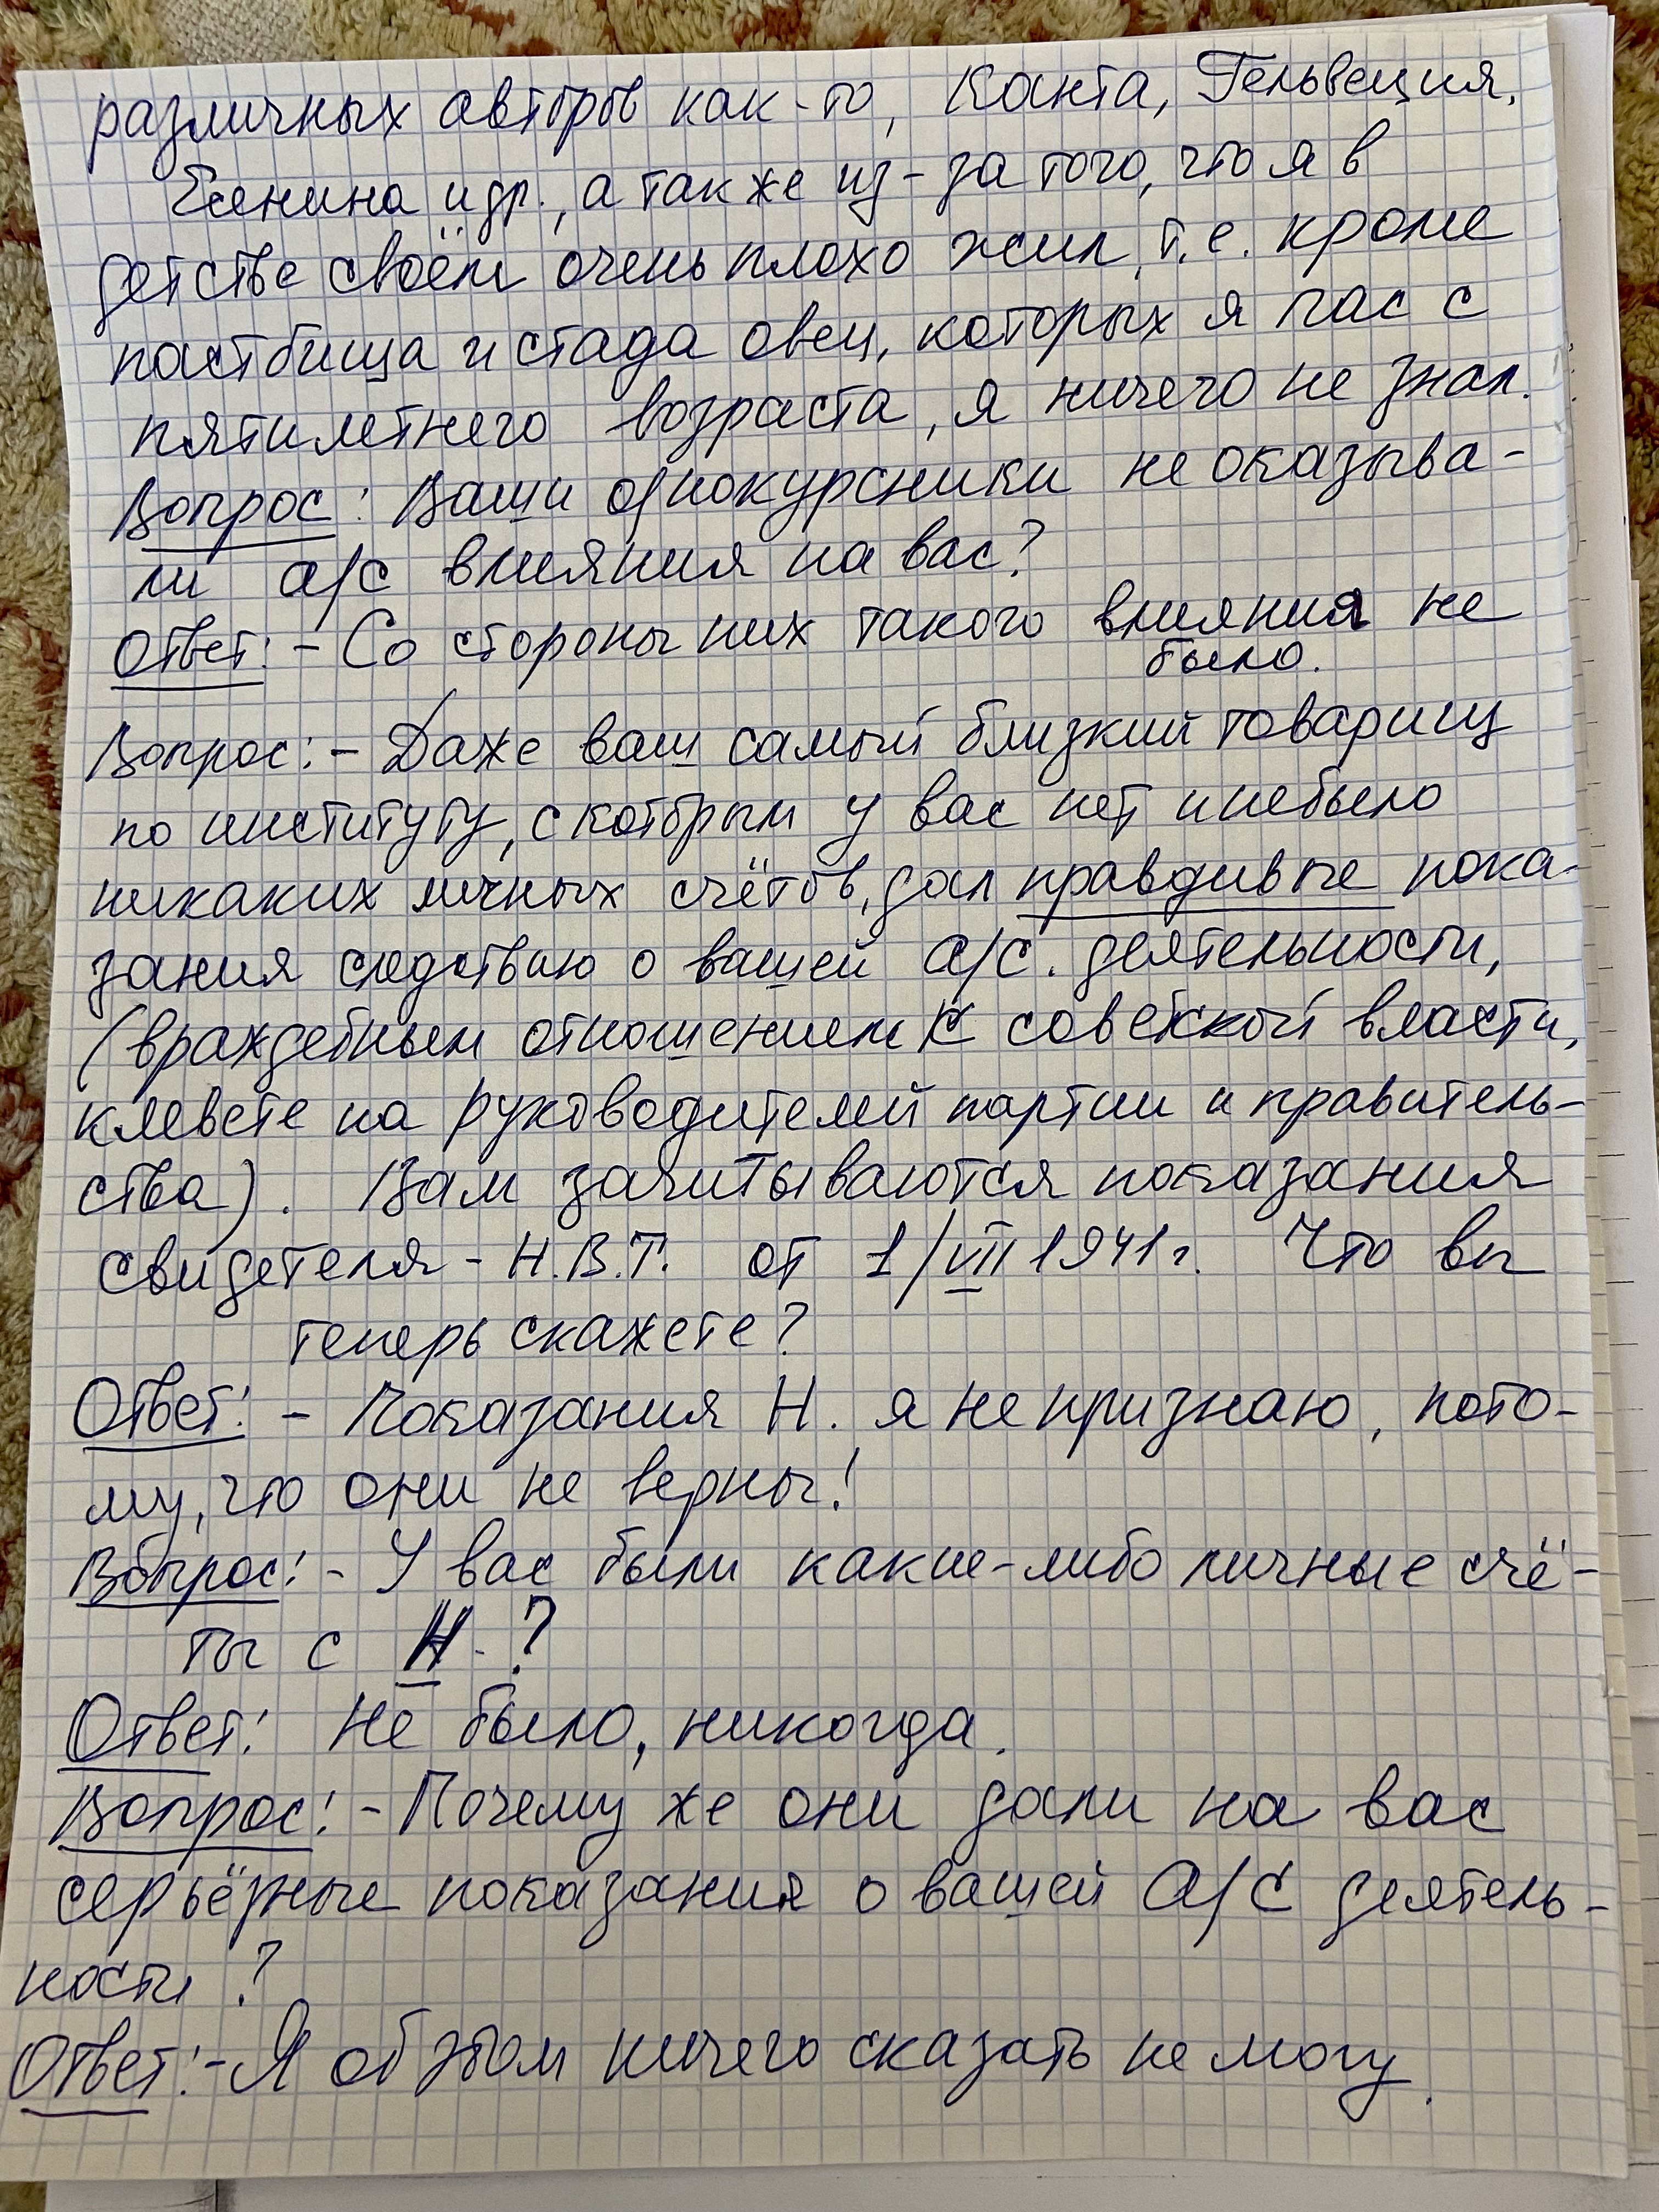 различных авторов как-то, Канта, Гельвеция,
Есенина и др., а также из-за того, что я в
детстве своём очень плохо жил, т.е. кроме
пастбища и стада овец, которых я пас с
пятилетнего возраста, я ничего не знал.
Вопрос: Ваши однокурсники не оказыва-
ли а/с влияния на вас?
Ответ: - Со стороны них такого влияния не
было.
Вопрос: - Даже ваш самый близкий товарищ
по институту, с которым у вас нет и не было
никаких личных счётов, дал правдивые пока-
зания следствию о вашей а/с. деятельности,
(враждебным отношением к советской власти,
клевете на руководителей партии и правитель-
ства). Вам зачитываются показания
свидетеля - Н.В.Т. от 1/VII 1941 г. Что вы
теперь скажете?
Ответ: - Показания Н. я не признаю, пото-
му, что они не верны!
Вопрос: - У вас были какие-либо личные счё-
ты с Н. ?
Ответ: Не было, никогда.
Вопрос: - Почему же они дали на вас
серьёзные показания о вашей А/С деятель-
ности ?
Ответ: - Я об этом ничего сказать не могу.